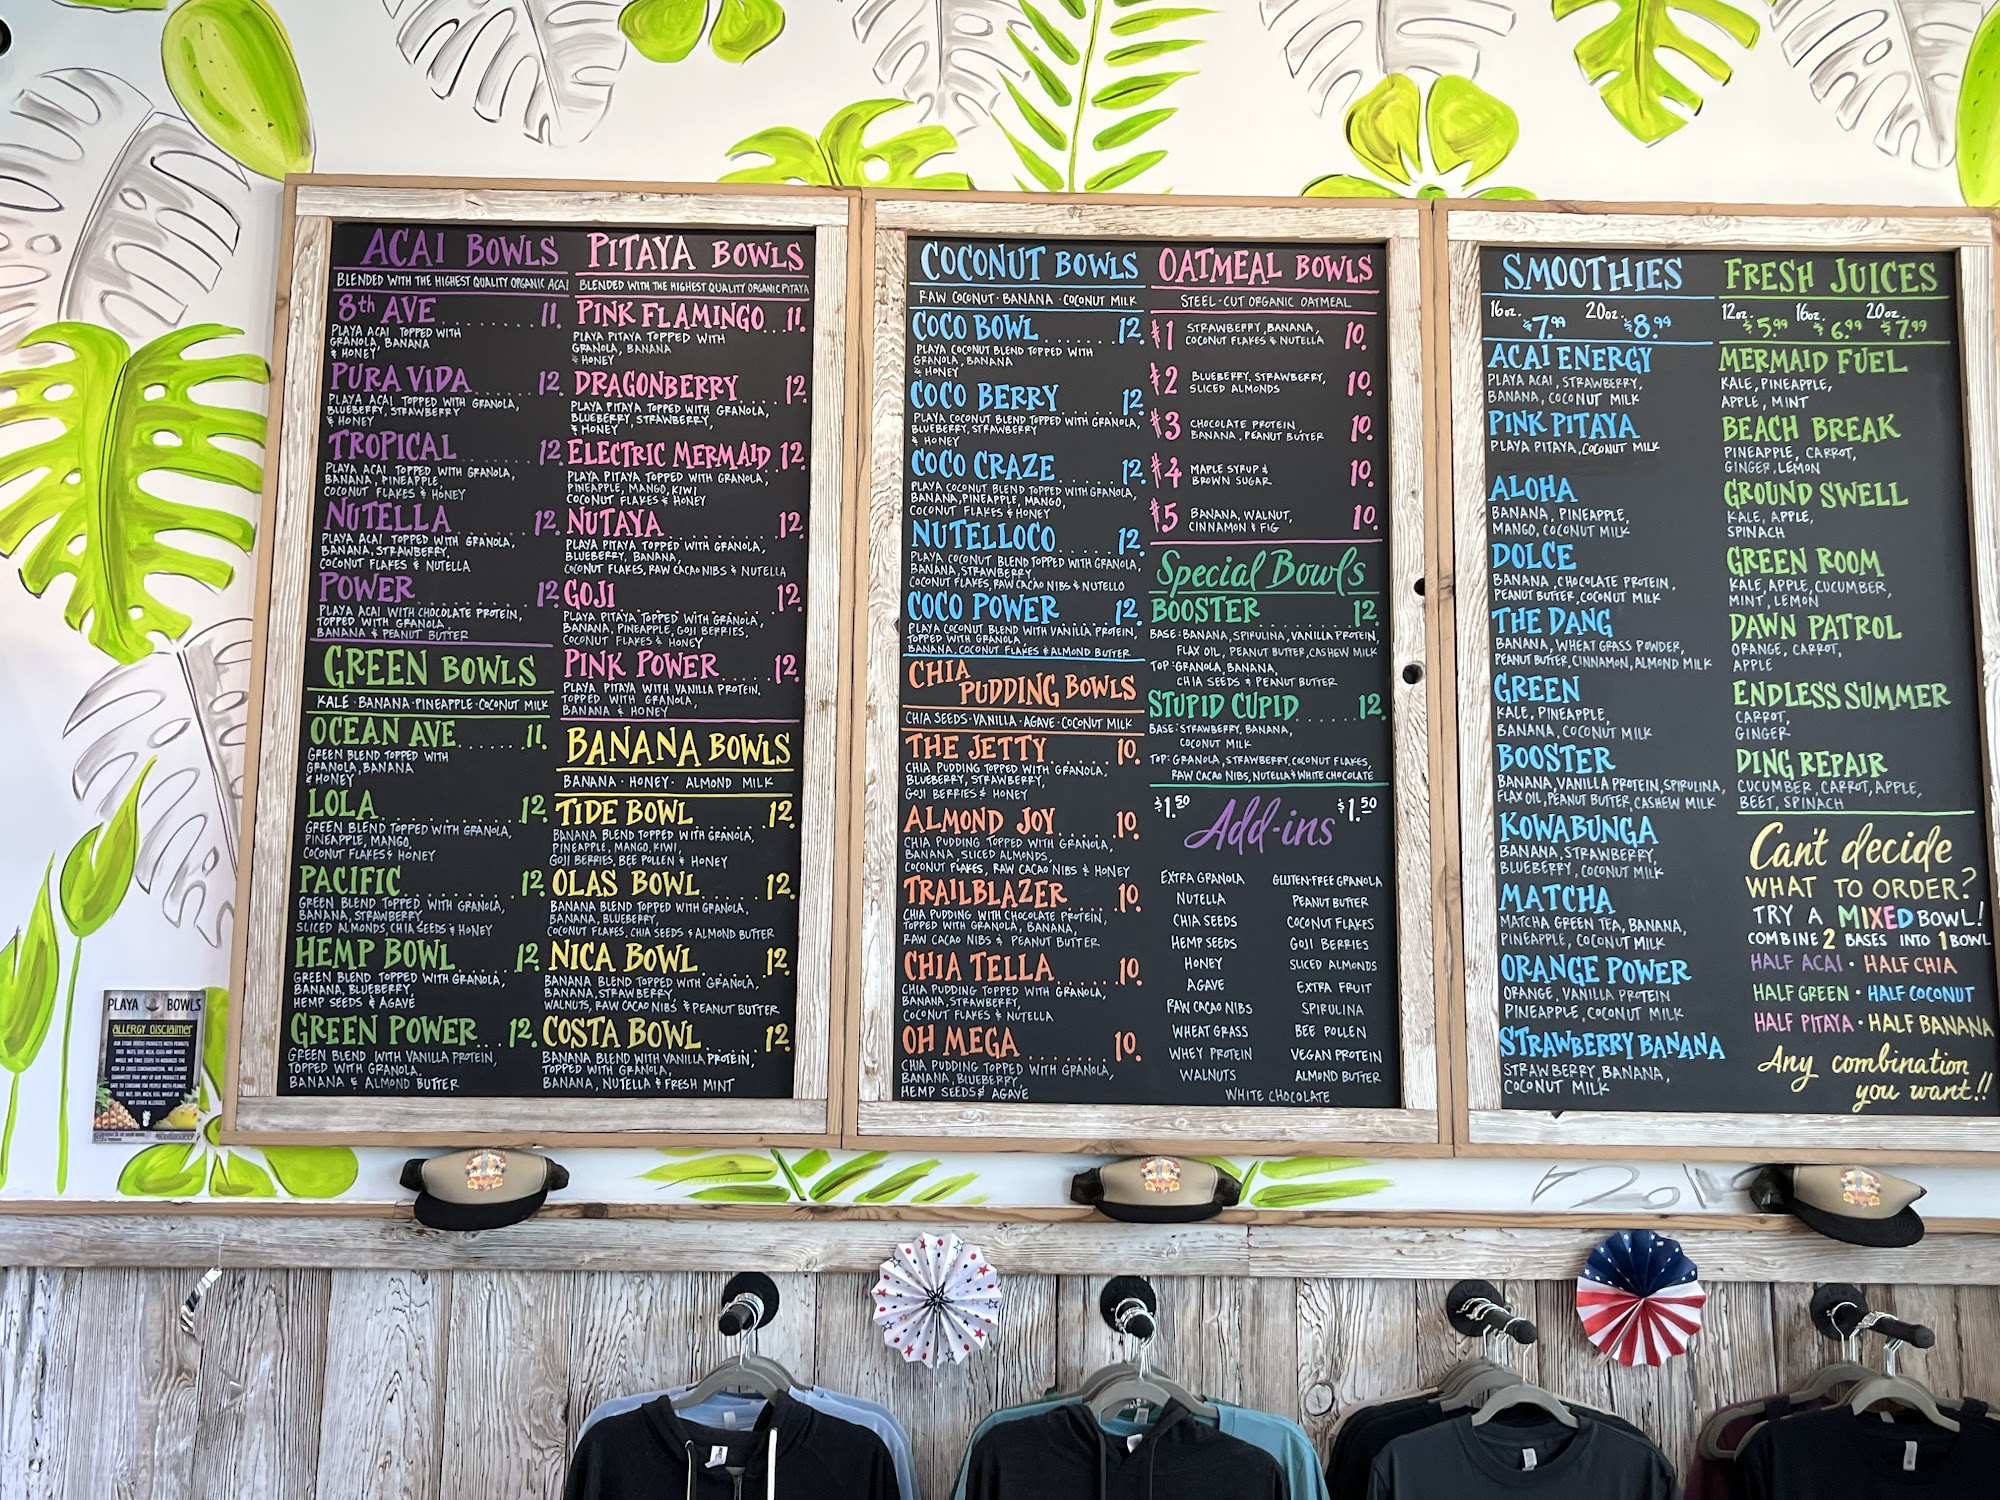 ACAI BOWLS
BLENDED WITH THE HIGHEST QUALITY ORGANIC ACAI
8th AVE ........ 11.
PLAYA ACAI TOPPED WITH
GRANOLA, BANANA
& HONEY
PURA VIDA ...... 12.
PLAYA ACAI TOPPED WITH GRANOLA,
BLUEBERRY, STRAWBERRY
& HONEY
TROPICAL ....... 12.
PLAYA ACAI TOPPED WITH GRANOLA,
BANANA, PINEAPPLE
COCONUT FLAKES & HONEY
NUTELLA ........ 12.
PLAYA ACAI TOPPED WITH GRANOLA,
BANANA, STRAWBERRY,
COCONUT FLAKES & NUTELLA
POWER .......... 12.
PLAYA ACAI WITH CHOCOLATE PROTEIN,
TOPPED WITH GRANOLA,
BANANA & PEANUT BUTTER
GREEN BOWLS
KALE · BANANA · PINEAPPLE · COCONUT MILK
OCEAN AVE ...... 11.
GREEN BLEND TOPPED WITH
GRANOLA, BANANA
& HONEY
LOLA ........... 12.
GREEN BLEND TOPPED WITH GRANOLA,
PINEAPPLE, MANGO,
COCONUT FLAKES & HONEY
PACIFIC ........ 12.
GREEN BLEND TOPPED WITH GRANOLA,
BANANA, STRAWBERRY
SLICED ALMONDS, CHIA SEEDS & HONEY
HEMP BOWL ...... 12.
GREEN BLEND TOPPED WITH GRANOLA,
BANANA, BLUEBERRY,
HEMP SEEDS & AGAVE
GREEN POWER .... 12.
GREEN BLEND WITH VANILLA PROTEIN,
TOPPED WITH GRANOLA.
BANANA & ALMOND BUTTER
PITAYA BOWLS
BLENDED WITH THE HIGHEST QUALITY ORGANIC PITAYA
PINK FLAMINGO ... 11.
PLAYA PITAYA TOPPED WITH
GRANOLA, BANANA
& HONEY
DRAGONBERRY ..... 12.
PLAYA PITAYA TOPPED WITH GRANOLA,
BLUEBERRY, STRAWBERRY,
& HONEY
ELECTRIC MERMAID 12.
PLAYA PITAYA TOPPED WITH GRANOLA,
PINEAPPLE, MANGO, KIWI
COCONUT FLAKES & HONEY
NUTAYA ......... 12.
PLAYA PITAYA TOPPED WITH GRANOLA,
BLUEBERRY, BANANA,
COCONUT FLAKES, RAW CACAO NIBS & NUTELLA
GOJI ........... 12.
PLAYA PITAYA TOPPED WITH GRANOLA,
BANANA, PINEAPPLE, GOJI BERRIES,
COCONUT FLAKES & HONEY
PINK POWER ..... 12.
PLAYA PITAYA WITH VANILLA PROTEIN,
TOPPED WITH GRANOLA,
BANANA & HONEY
BANANA BOWLS
BANANA · HONEY · ALMOND MILK
TIDE BOWL ...... 12.
BANANA BLEND TOPPED WITH GRANOLA,
PINEAPPLE, MANGO, KIWI,
GOJI BERRIES, BEE POLLEN & HONEY
OLAS BOWL ...... 12.
BANANA BLEND TOPPED WITH GRANOLA,
BANANA, BLUEBERRY,
COCONUT FLAKES, CHIA SEEDS & ALMOND BUTTER
NICA BOWL ...... 12.
BANANA BLEND TOPPED WITH GRANOLA,
BANANA, STRAWBERRY,
WALNUTS, RAW CACAO NIBS & PEANUT BUTTER
COSTA BOWL ..... 12.
BANANA BLEND WITH VANILLA PROTEIN,
TOPPED WITH GRANOLA,
BANANA, NUTELLA & FRESH MINT
COCONUT BOWLS
RAW COCONUT · BANANA · COCONUT MILK
COCO BOWL ...... 12.
PLAYA COCONUT BLEND TOPPED WITH
GRANOLA, BANANA
& HONEY
COCO BERRY ..... 12.
PLAYA COCONUT BLEND TOPPED WITH GRANOLA,
BLUEBERRY, STRAWBERRY,
& HONEY
COCO CRAZE ..... 12.
PLAYA COCONUT BLEND TOPPED WITH GRANOLA,
BANANA, PINEAPPLE, MANGO,
COCONUT FLAKES & HONEY
NUTELLOCO ...... 12.
PLAYA COCONUT BLEND TOPPED WITH GRANOLA,
BANANA, STRAWBERRY,
COCONUT FLAKES, RAW CACAO NIBS & NUTELLO
COCO POWER ..... 12.
PLAYA COCONUT BLEND WITH VANILLA PROTEIN,
TOPPED WITH GRANOLA
BANANA, COCONUT FLAKES & ALMOND BUTTER
CHIA
PUDDING BOWLS
CHIA SEEDS · VANILLA · AGAVE · COCONUT MILK
THE JETTY ...... 10.
CHIA PUDDING TOPPED WITH GRANOLA,
BLUEBERRY, STRAWBERRY,
GOJI BERRIES & HONEY
ALMOND JOY ..... 10.
CHIA PUDDING TOPPED WITH GRANOLA,
BANANA, SLICED ALMONDS,
COCONUT FLAKES, RAW CACAO NIBS & HONEY
TRAILBLAZER .... 10.
CHIA PUDDING WITH CHOCOLATE PROTEIN,
TOPPED WITH GRANOLA, BANANA,
RAW CACAO NIBS & PEANUT BUTTER
CHIA TELLA ..... 10.
CHIA PUDDING TOPPED WITH GRANOLA,
BANANA, STRAWBERRY,
COCONUT FLAKES & NUTELLA
OH MEGA ........ 10.
CHIA PUDDING TOPPED WITH GRANOLA,
BANANA, BLUEBERRY,
HEMP SEEDS & AGAVE
OATMEAL BOWLS
STEEL-CUT ORGANIC OATMEAL
#1 STRAWBERRY, BANANA, 10.
COCONUT FLAKES & NUTELLA
#2 BLUEBERRY, STRAWBERRY, 10.
SLICED ALMONDS
#3 CHOCOLATE PROTEIN 10.
BANANA, PEANUT BUTTER
#4 MAPLE SYRUP & 10.
BROWN SUGAR
#5 BANANA, WALNUT, 10.
CINNAMON & FIG
Special Bowls
BOOSTER ........ 12.
BASE: BANANA, SPIRULINA, VANILLA PROTEIN,
FLAX OIL, PEANUT BUTTER, CASHEW MILK
TOP: GRANOLA, BANANA,
CHIA SEEDS & PEANUT BUTTER
STUPID CUPID ... 12.
BASE: STRAWBERRY, BANANA,
COCONUT MILK
TOP: GRANOLA, STRAWBERRY, COCONUT FLAKES,
RAW CACAO NIBS, NUTELLA & WHITE CHOCOLATE
$1.50 Add-ins $1.50
EXTRA GRANOLA GLUTEN-FREE GRANOLA
NUTELLA PEANUT BUTTER
CHIA SEEDS COCONUT FLAKES
HEMP SEEDS GOJI BERRIES
HONEY SLICED ALMONDS
AGAVE EXTRA FRUIT
RAW CACAO NIBS SPIRULINA
WHEAT GRASS BEE POLLEN
WHEY PROTEIN VEGAN PROTEIN
WALNUTS ALMOND BUTTER
WHITE CHOCOLATE
SMOOTHIES
16oz. $7.99 20oz. $8.99
ACAI ENERGY
PLAYA ACAI, STRAWBERRY,
BANANA, COCONUT MILK
PINK PITAYA
PLAYA PITAYA, COCONUT MILK
ALOHA
BANANA, PINEAPPLE,
MANGO, COCONUT MILK
DOLCE
BANANA, CHOCOLATE PROTEIN,
PEANUT BUTTER, COCONUT MILK
THE DANG
BANANA, WHEAT GRASS POWDER,
PEANUT BUTTER, CINNAMON, ALMOND MILK
GREEN
KALE, PINEAPPLE,
BANANA, COCONUT MILK
BOOSTER
BANANA, VANILLA PROTEIN, SPIRULINA,
FLAX OIL, PEANUT BUTTER, CASHEW MILK
KOWABUNGA
BANANA, STRAWBERRY,
BLUEBERRY, COCONUT MILK
MATCHA
MATCHA GREEN TEA, BANANA,
PINEAPPLE, COCONUT MILK
ORANGE POWER
ORANGE, VANILLA PROTEIN
PINEAPPLE, COCONUT MILK
STRAWBERRY BANANA
STRAWBERRY, BANANA,
COCONUT MILK
FRESH JUICES
12oz. $5.99 16oz. $6.99 20oz. $7.99
MERMAID FUEL
KALE, PINEAPPLE,
APPLE, MINT
BEACH BREAK
PINEAPPLE, CARROT,
GINGER, LEMON
GROUND SWELL
KALE, APPLE,
SPINACH
GREEN ROOM
KALE, APPLE, CUCUMBER,
MINT, LEMON
DAWN PATROL
ORANGE, CARROT,
APPLE
ENDLESS SUMMER
CARROT,
GINGER
DING REPAIR
CUCUMBER, CARROT, APPLE,
BEET, SPINACH
Can't decide
WHAT TO ORDER?
TRY A MIXED BOWL!
COMBINE 2 BASES INTO 1 BOWL
HALF ACAI · HALF CHIA
HALF GREEN · HALF COCONUT
HALF PITAYA · HALF BANANA
Any combination
you want!!
PLAYA BOWLS
ALLERGY DISCLAIMER